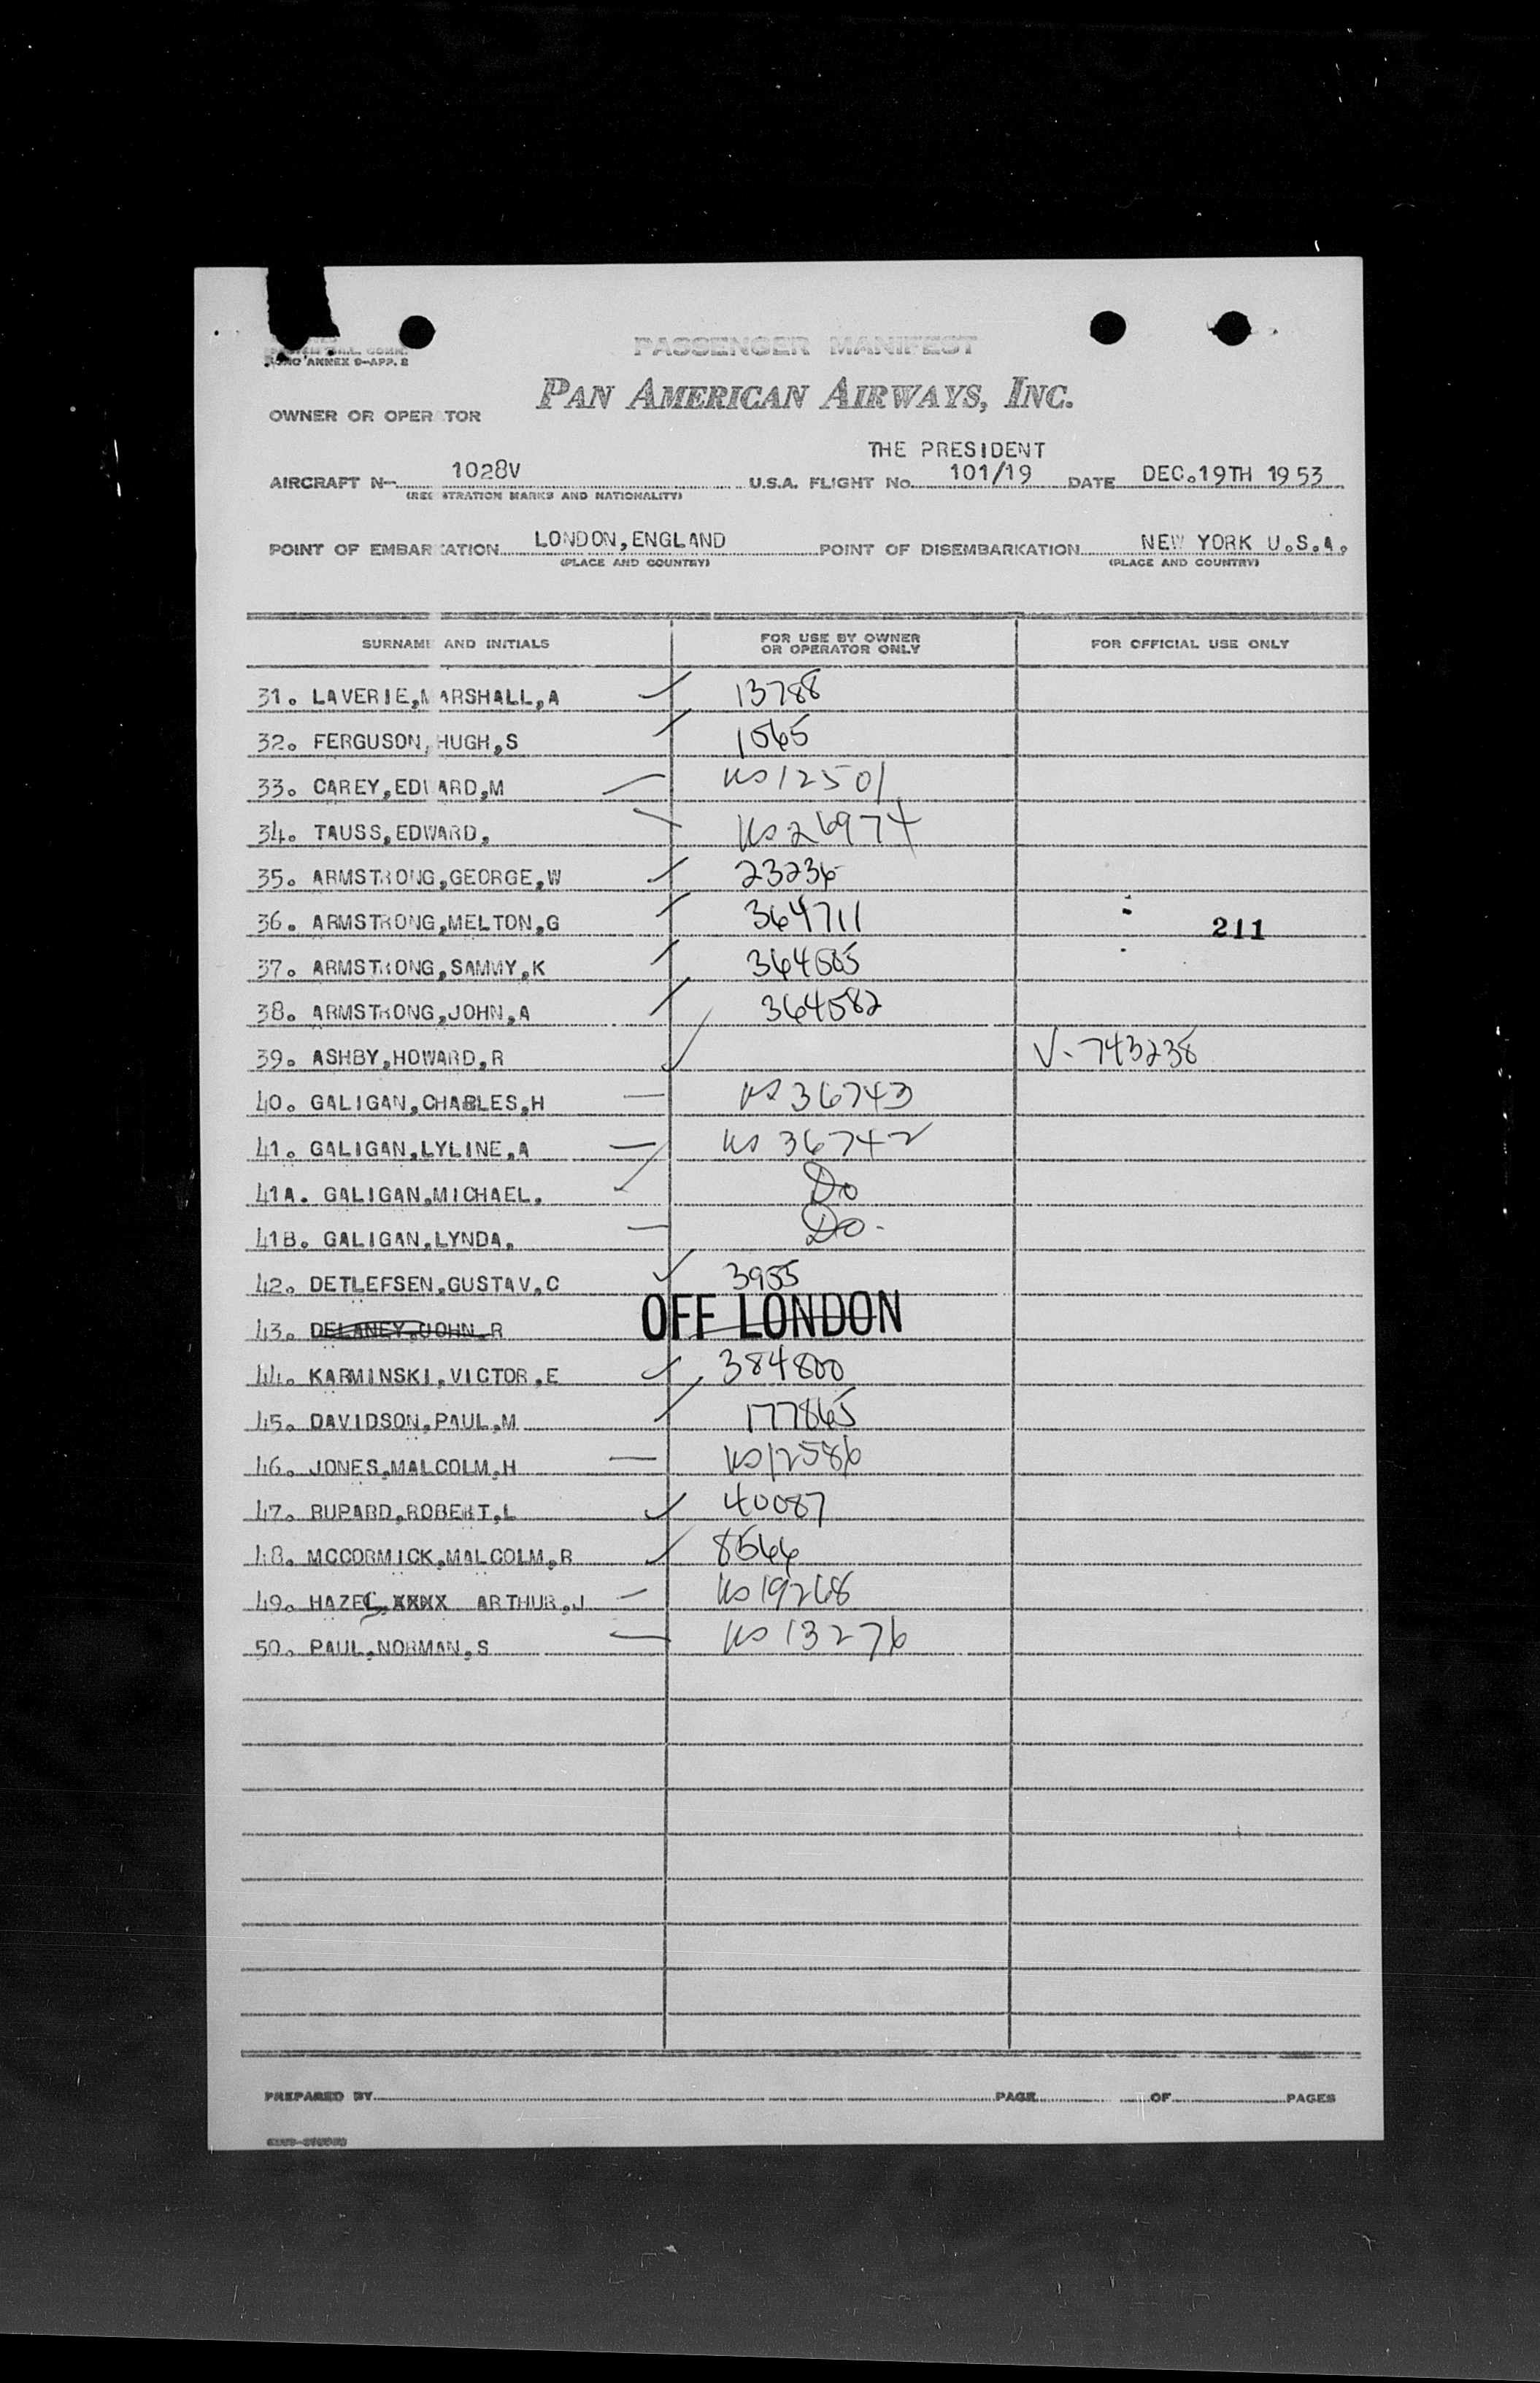 PASSENGER MANIFEST
ANNEX 9-APP. 2
PAN AMERICAN AIRWAYS, INC.
OWNER OR OPER TOR
THE PRESIDENT
AIRCRAFT N- 1028V U.S.A. FLIGHT No. 101/19 DATE DEC.19TH 1953
(REG STRATION MARKS AND NATIONALITY)
POINT OF EMBARKATION LONDON, ENGLAND POINT OF DISEMBARKATION NEW YORK U.S.A.
(PLACE AND COUNTRY) (PLACE AND COUNTRY)
SURNAME AND INITIALS FOR USE BY OWNER OR OPERATOR ONLY FOR OFFICIAL USE ONLY
31. LAVERIE,MARSHALL,A 13788
32. FERGUSON,HUGH,S 1565
33. CAREY,EDWARD,M KS 12501
34. TAUSS,EDWARD, KS 26974
35. ARMSTRONG,GEORGE,W 23236
36. ARMSTRONG,MELTON,G 364711 211
37. ARMSTRONG,SAMMY,K 364585
38. ARMSTRONG,JOHN,A 364582
39. ASHBY,HOWARD,R V-743238
40. GALIGAN,CHARLES,H KS 36743
41. GALIGAN,LYLINE,A KS 36742
41A. GALIGAN,MICHAEL, Do
41B. GALIGAN,LYNDA, Do-
42. DETLEFSEN,GUSTAV,C 3955
43. DELANEY,JOHN,R OFF LONDON
44. KARMINSKI,VICTOR,E 384800
45. DAVIDSON,PAUL,M 177865
46. JONES,MALCOLM,H KS 12586
47. RUPARD,ROBERT,L 40087
48. MCCORMICK,MALCOLM,R 8566
49. HAZEL,XXXX ARTHUR,J KS 19268
50. PAUL,NORMAN,S KS 13276
PREPARED BY PAGE OF PAGES